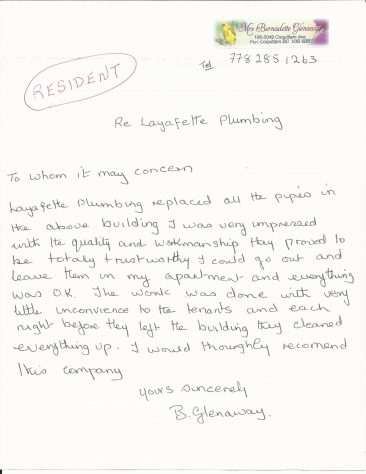 Mrs Bernadette Glenaway
166-2049 Coquitlam Ave
Port Coquitlam BC
Tel 778 285 1263
RESIDENT
Re Layafette Plumbing
To whom it may concern
Layafette Plumbing replaced all the pipes in
the above building I was very impressed
with the quality and workmanship they proved to
be totaly trustworthy I could go out and
leave them in my apartment and everything
was O.K. The work was done with very
little unconvience to the tenants and each
night before they left the building they cleaned
everything up. I would throughly recomend
this company
yours sincerely
B. Glenaway.